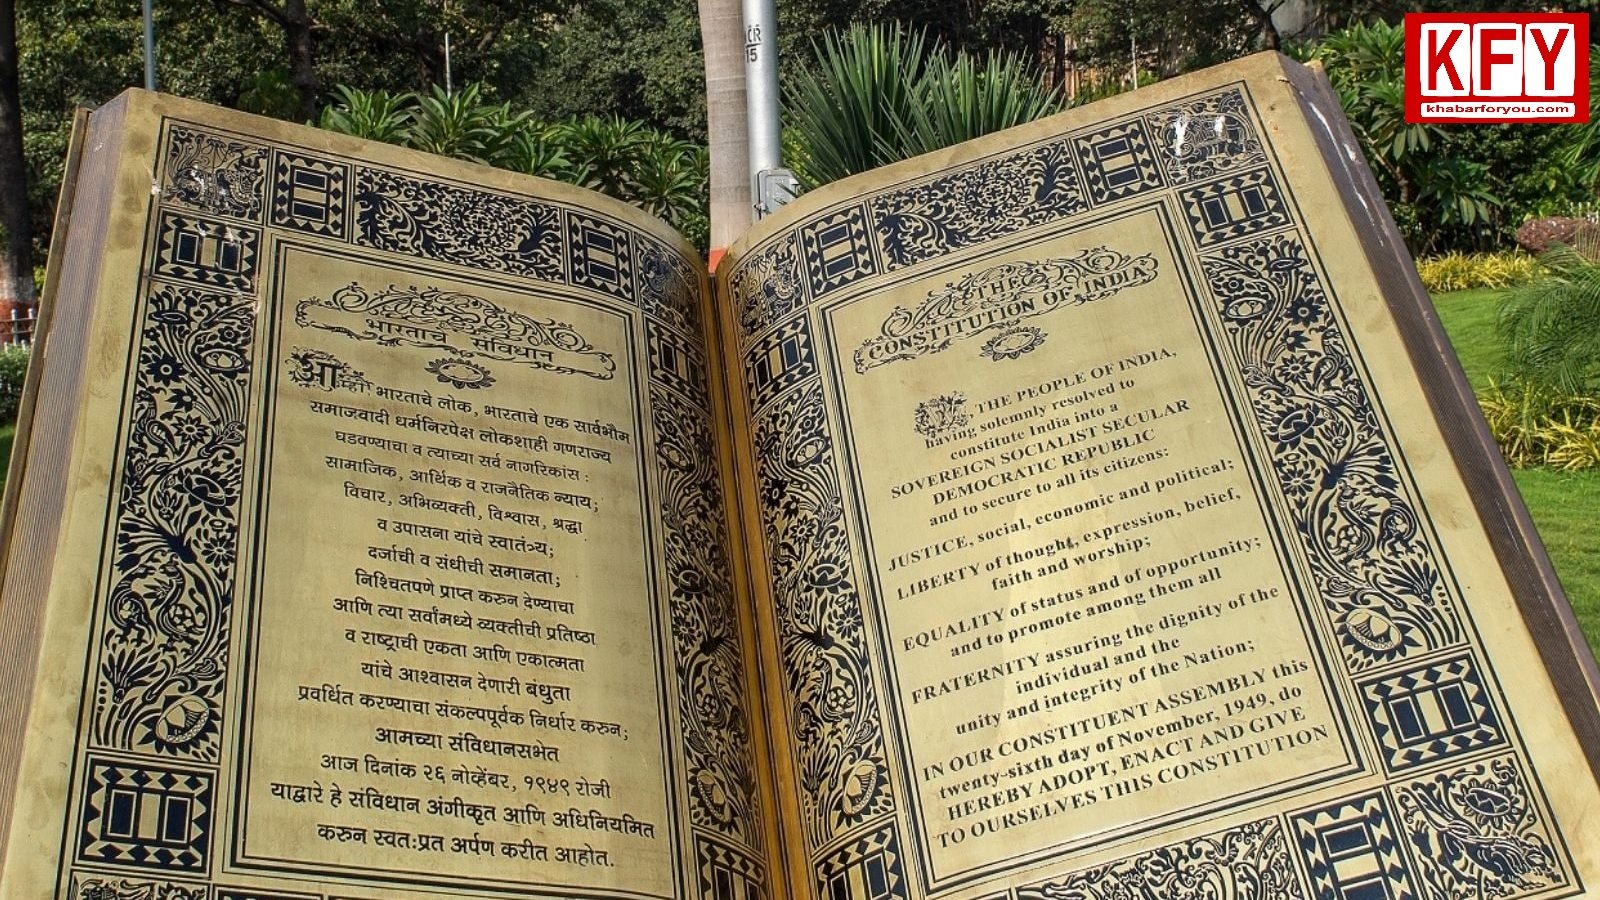 KFY
khabarforyou.com
CR
15
भारताचे संविधान
आम्ही भारताचे लोक, भारताचे एक सार्वभौम
समाजवादी धर्मनिरपेक्ष लोकशाही गणराज्य
घडवण्याचा व त्याच्या सर्व नागरिकांस :
सामाजिक, आर्थिक व राजनैतिक न्याय;
विचार, अभिव्यक्ती, विश्वास, श्रद्धा
व उपासना यांचे स्वातंत्र्य;
दर्जाची व संधीची समानता;
निश्चितपणे प्राप्त करुन देण्याचा
आणि त्या सर्वांमध्ये व्यक्तीची प्रतिष्ठा
व राष्ट्राची एकता आणि एकात्मता
यांचे आश्वासन देणारी बंधुता
प्रवर्धित करण्याचा संकल्पपूर्वक निर्धार करुन;
आमच्या संविधानसभेत
आज दिनांक २६ नोव्हेंबर, १९४९ रोजी
याद्वारे हे संविधान अंगीकृत आणि अधिनियमित
करुन स्वतःप्रत अर्पण करीत आहोत.
THE
CONSTITUTION OF INDIA
WE, THE PEOPLE OF INDIA,
having solemnly resolved to
constitute India into a
SOVEREIGN SOCIALIST SECULAR
DEMOCRATIC REPUBLIC
and to secure to all its citizens:
JUSTICE, social, economic and political;
LIBERTY of thought, expression, belief,
faith and worship;
EQUALITY of status and of opportunity;
and to promote among them all
FRATERNITY assuring the dignity of the
individual and the
unity and integrity of the Nation;
IN OUR CONSTITUENT ASSEMBLY this
twenty-sixth day of November, 1949, do
HEREBY ADOPT, ENACT AND GIVE
TO OURSELVES THIS CONSTITUTION